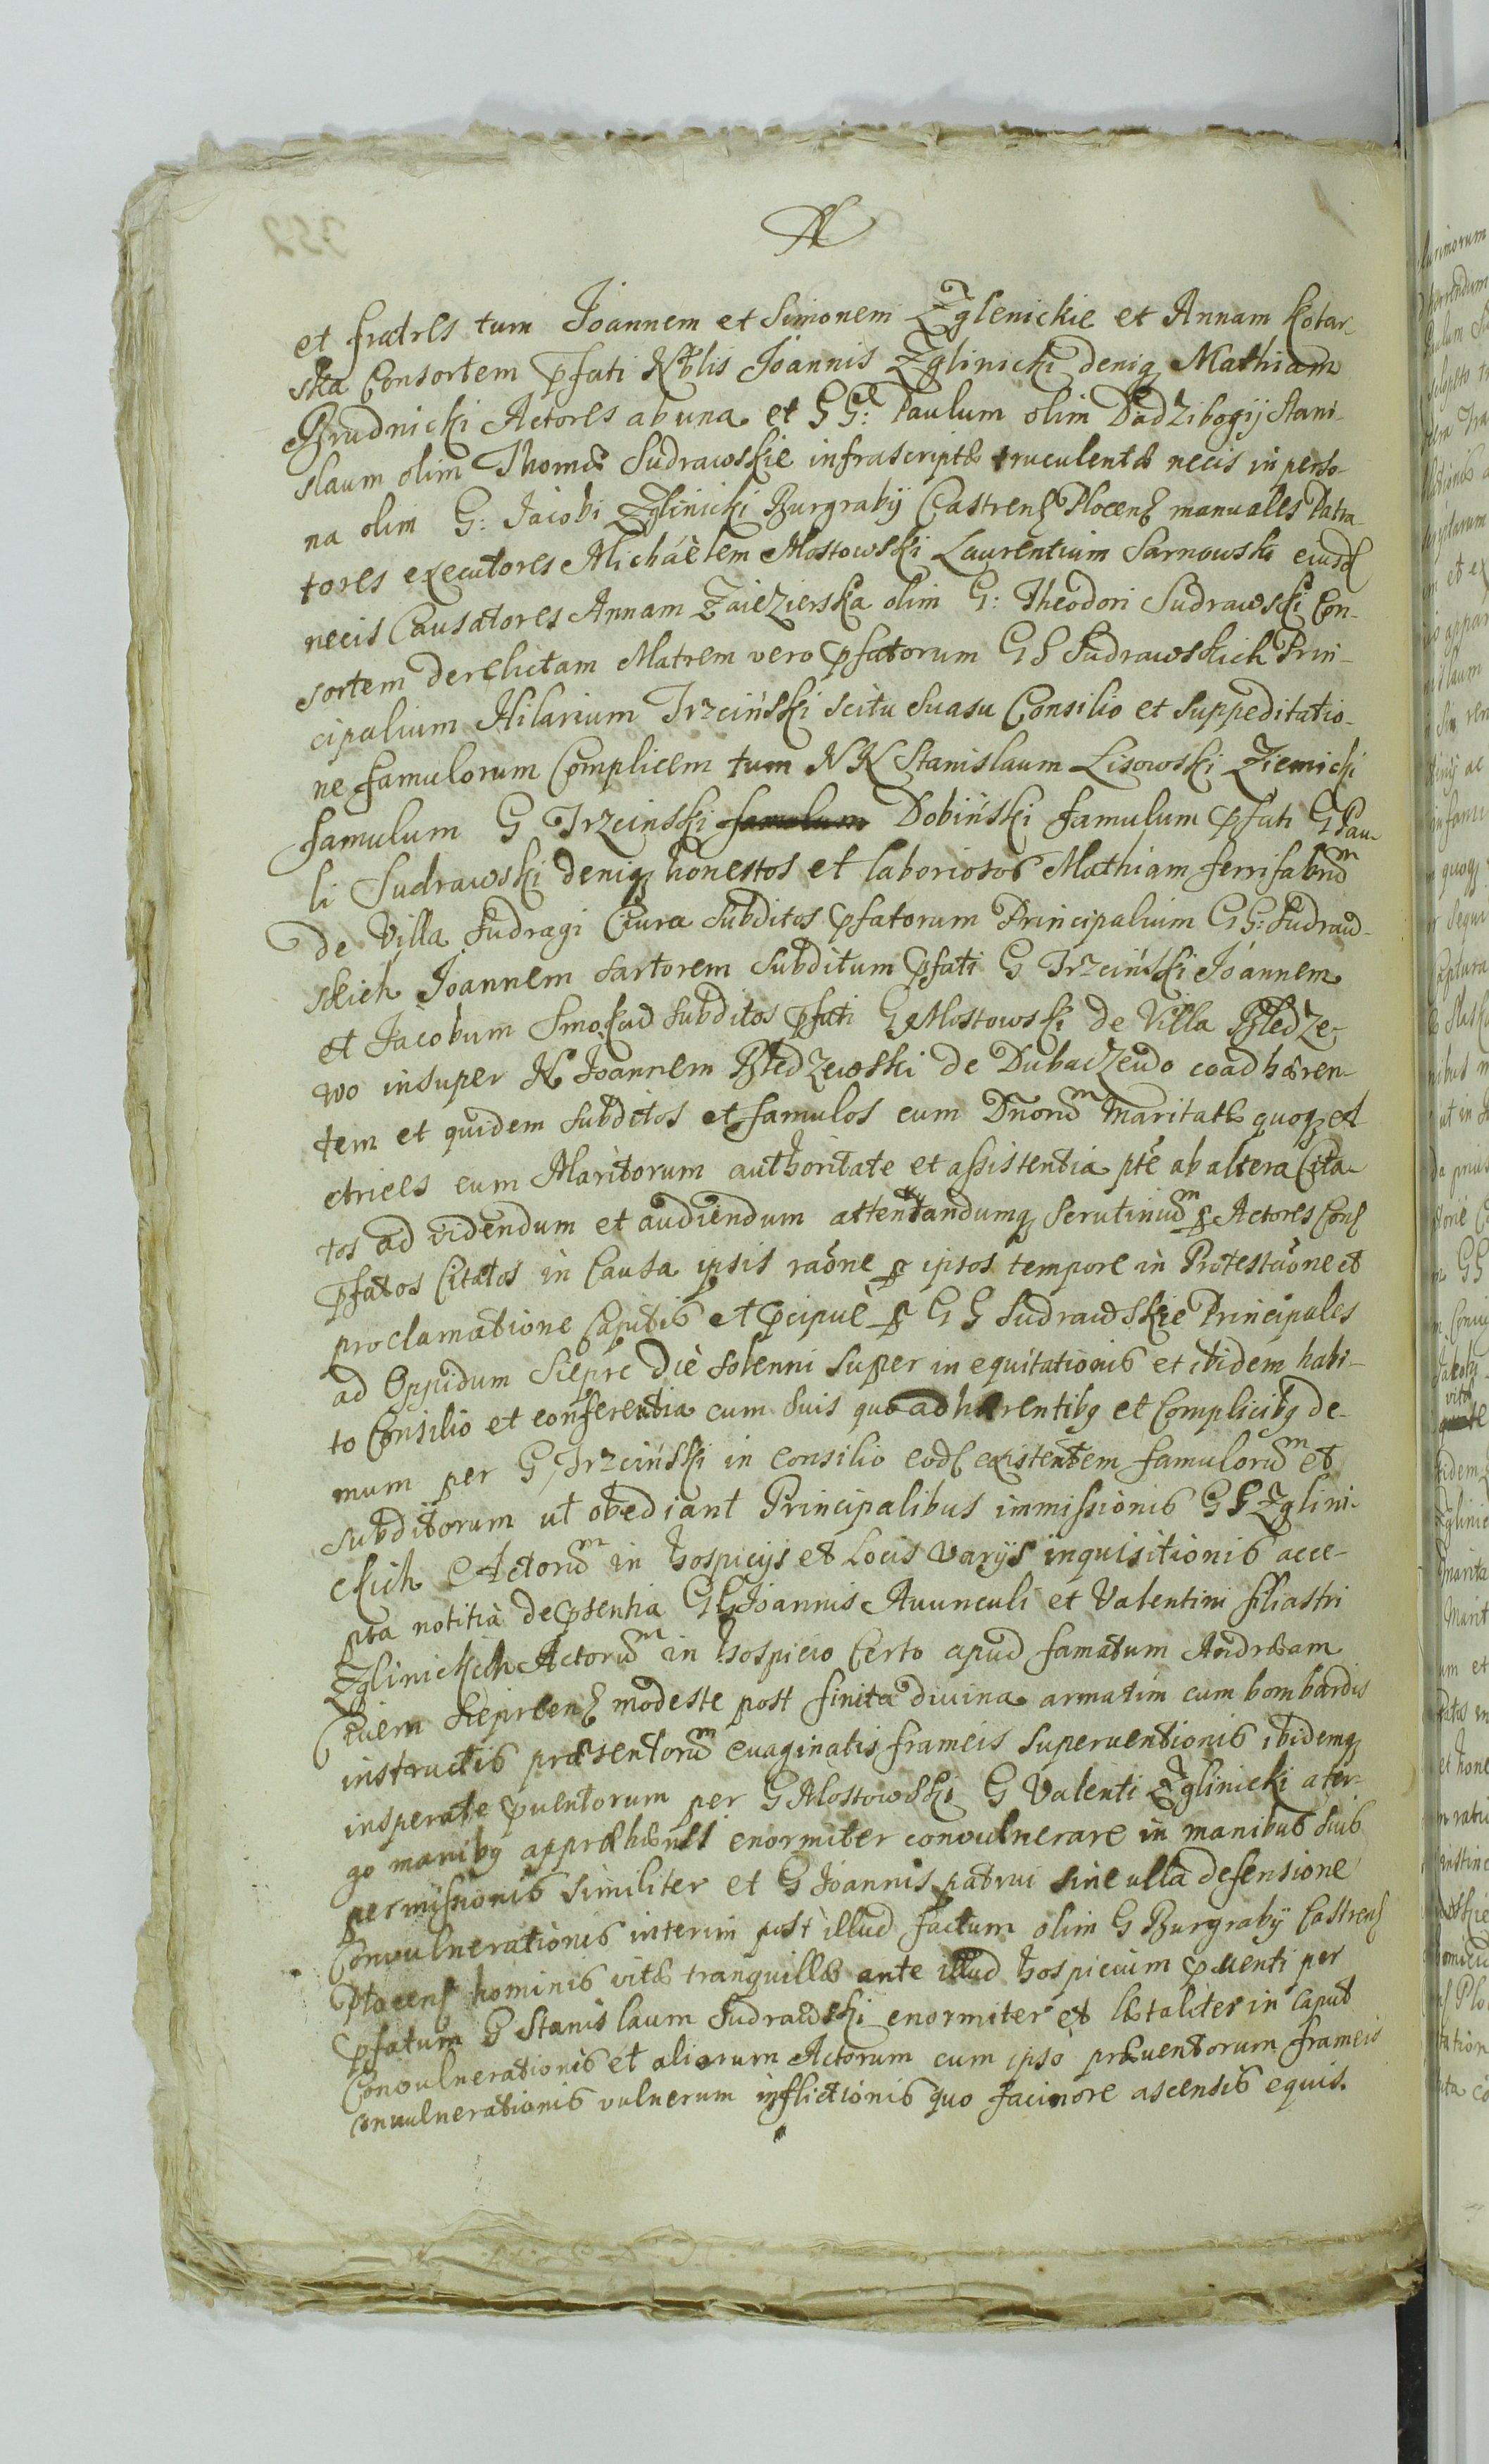 N
et fratres tum Joannem et Simonem Zglenickie et Annam Kotar-
ska Consortem pfati Nblis Joannis Zglinicki deniq Mathiam
Brudnicki Actores ab una et GG: Paulum olim Dadzibogij Stani-
slaum olim Thomæ Sudrawskie infrascriptæ truculentæ necis in perso-
na olim G: Jacobi Zglinicki Burgrabij Castrens Plocens manuales Patra-
tores executores Michäelem Mostowski Laurentium Sarnowski eiusd
necis Causatores Annam Zaiezierska olim G: Theodori Sudrawski Con-
sortem derelictam Matrem vero pfatorum GG Sudrawskich Prin-
cipalium Hilarium Trzciński scitu suasu Consilio et suppeditatio-
ne famulorum Complicem tum NN Stanislaum Lisowski Ziemicki
famulum G Trzcinski famulum Dobiński famulum pfati G Pau-
li Sudrawski deniq honestos et laboriosos Mathiam ferrifabrum
de Villa Sudragi Ciura subditos pfatorum Principalium GG: Sudraw-
skich Joannem sartorem subditum pfati G Trzciński Joannem
et Jacobum subditos pfati G Mostowski de Villa Bledze-
wo insuper N Joannem Bledzewski de Dubaczewo coadhæren-
tem et quidem subditos et famulos cum Dnorum maritatæ quoq et
ctrices cum Maritorum authoritate et assistentia pte ab altera Cita-
tos ad videndum et audiendum attentandumq scrutinium p Actores Cons
pfatos Citatos in Causa ipsis raone p ipsos tempore in Protestaone et
proclamatione Capitis et pcipuè p GG Sudrawskie Principales
ad Oppidum Siepre die solenni super in equitationis et ibidem habi-
to Consilio et conferentia cum suis quo adhærentibq et Complicibq de-
mum per G Trzciński in consilio eod existentem famulorum et
subditorum ut obediant Principalibus immissionis GG Zglini-
ckich Actorum in hospicijs et Locis varijs inquisitionis acce-
pta notitia de psentia GG Joannis Auunculi et Valentini filiastri
Zglinickich Actorum in hospicio Certo apud famatum Andræam
Civem Sieprcens modeste post finita divina armatim cum bombardis
instructis præsentorum euaginatis frameis superuentionis ibidemq
insperate puentorum per G Mostowski G Valenti Zglinicki a ter-
go manibq appræhensi enormiter convulnerare in manibus suis
permissionis similiter et G Joannis patrui sine ulla defensione
Convulnerationis interim post illud factum olim G Burgrabij Castrens
Plocens hominis vitæ tranquillæ ante illud hospicium puenti per
pfatum G Stanislaum Sudrawski enormiter et lætaliter in caput
Convulnerationis et aliorum Actorum cum ipso præuentorum frameis
convulnerationis vulnerum inflictionis quo facinore ascensis equis.